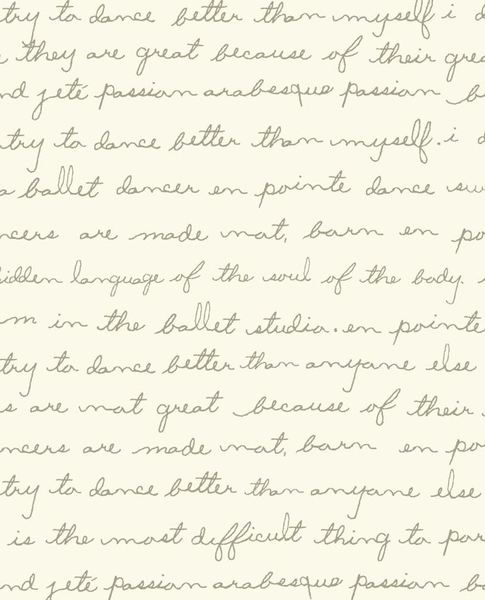 try to dance better than myself i d
they are great because of their grea
nd jeté passion arabesque passion b
try to dance better than myself. i d
a ballet dancer en pointe dance sw
ncers are made not, born en po
idden language of the soul of the body.
m in the ballet studio. en pointe
try to dance better than anyone else
s are not great because of their
ncers are made not, born en po
try to dance better than anyone else
is the most difficult thing to por
nd jeté passion arabesque passion b